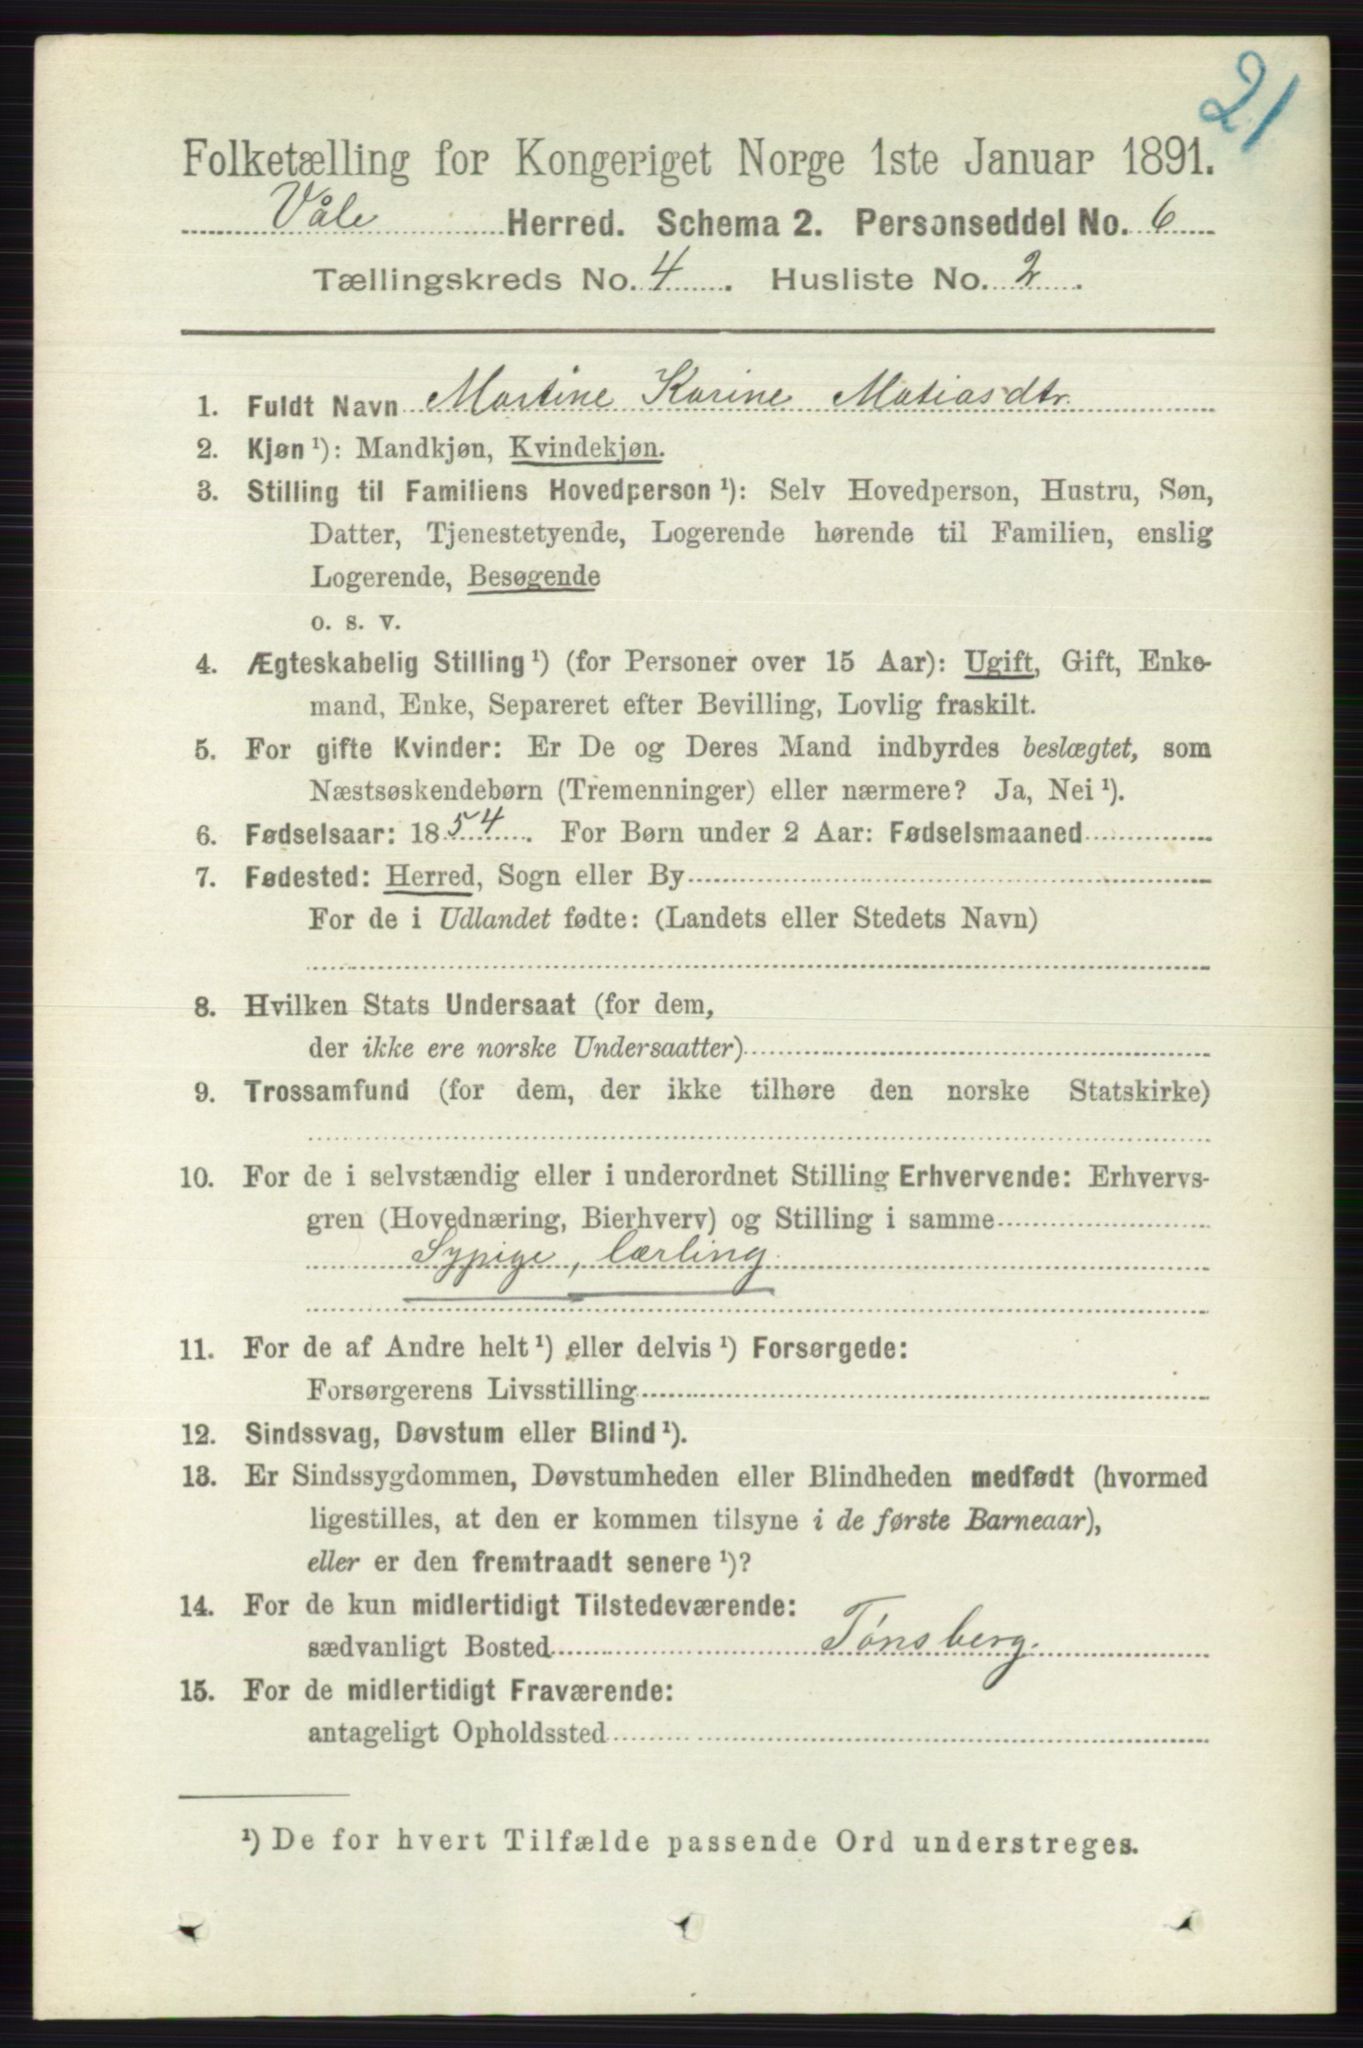 21
Folketælling for Kongeriget Norge 1ste Januar 1891.
Våle Herred. Schema 2. Personseddel No. 6
Tællingskreds No. 4. Husliste No. 2.
1. Fuldt Navn Martine Karine Matiasdtr.
2. Kjøn ¹): Mandkjøn, Kvindekjøn.
3. Stilling til Familiens Hovedperson ¹): Selv Hovedperson, Hustru, Søn,
Datter, Tjenestetyende, Logerende hørende til Familien, enslig
Logerende, Besøgende
o. s. v.
4. Ægteskabelig Stilling ¹) (for Personer over 15 Aar): Ugift, Gift, Enke-
mand, Enke, Separeret efter Bevilling, Lovlig fraskilt.
5. For gifte Kvinder: Er De og Deres Mand indbyrdes beslægtet, som
Næstsøskendebørn (Tremenninger) eller nærmere? Ja, Nei ¹).
6. Fødselsaar: 1854. For Børn under 2 Aar: Fødselsmaaned
7. Fødested: Herred, Sogn eller By
For de i Udlandet fødte: (Landets eller Stedets Navn)
8. Hvilken Stats Undersaat (for dem,
der ikke ere norske Undersaatter)
9. Trossamfund (for dem, der ikke tilhøre den norske Statskirke)
10. For de i selvstændig eller i underordnet Stilling Erhvervende: Erhvervs-
gren (Hovednæring, Bierhverv) og Stilling i samme
Sypige, lærling.
11. For de af Andre helt ¹) eller delvis ¹) Forsørgede:
Forsørgerens Livsstilling
12. Sindssvag, Døvstum eller Blind ¹).
13. Er Sindssygdommen, Døvstumheden eller Blindheden medfødt (hvormed
ligestilles, at den er kommen tilsyne i de første Barneaar),
eller er den fremtraadt senere ¹)?
14. For de kun midlertidigt Tilstedeværende:
sædvanligt Bosted Tønsberg.
15. For de midlertidigt Fraværende:
antageligt Opholdssted
¹) De for hvert Tilfælde passende Ord understreges.